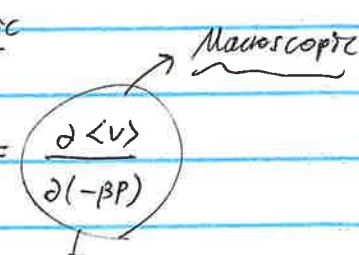 ic
Macroscopic
= ∂<V>
∂(-βP)